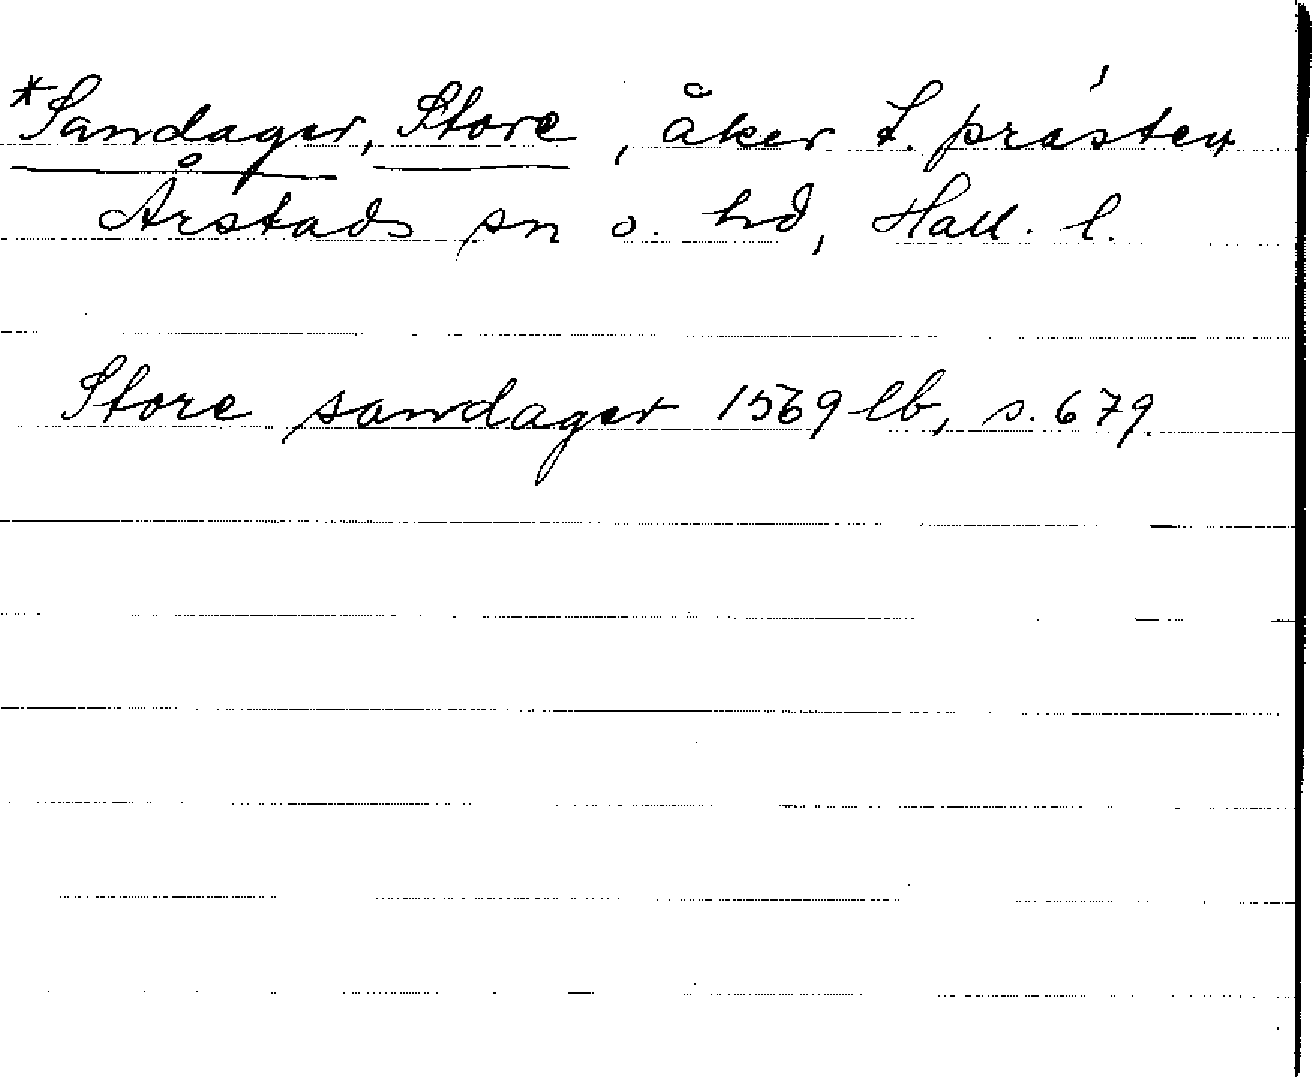 *Sandager, Store, åker t. prästen
Årstads sn o. hd, Hall. l.
Store sandager 1569 lb, s. 679.